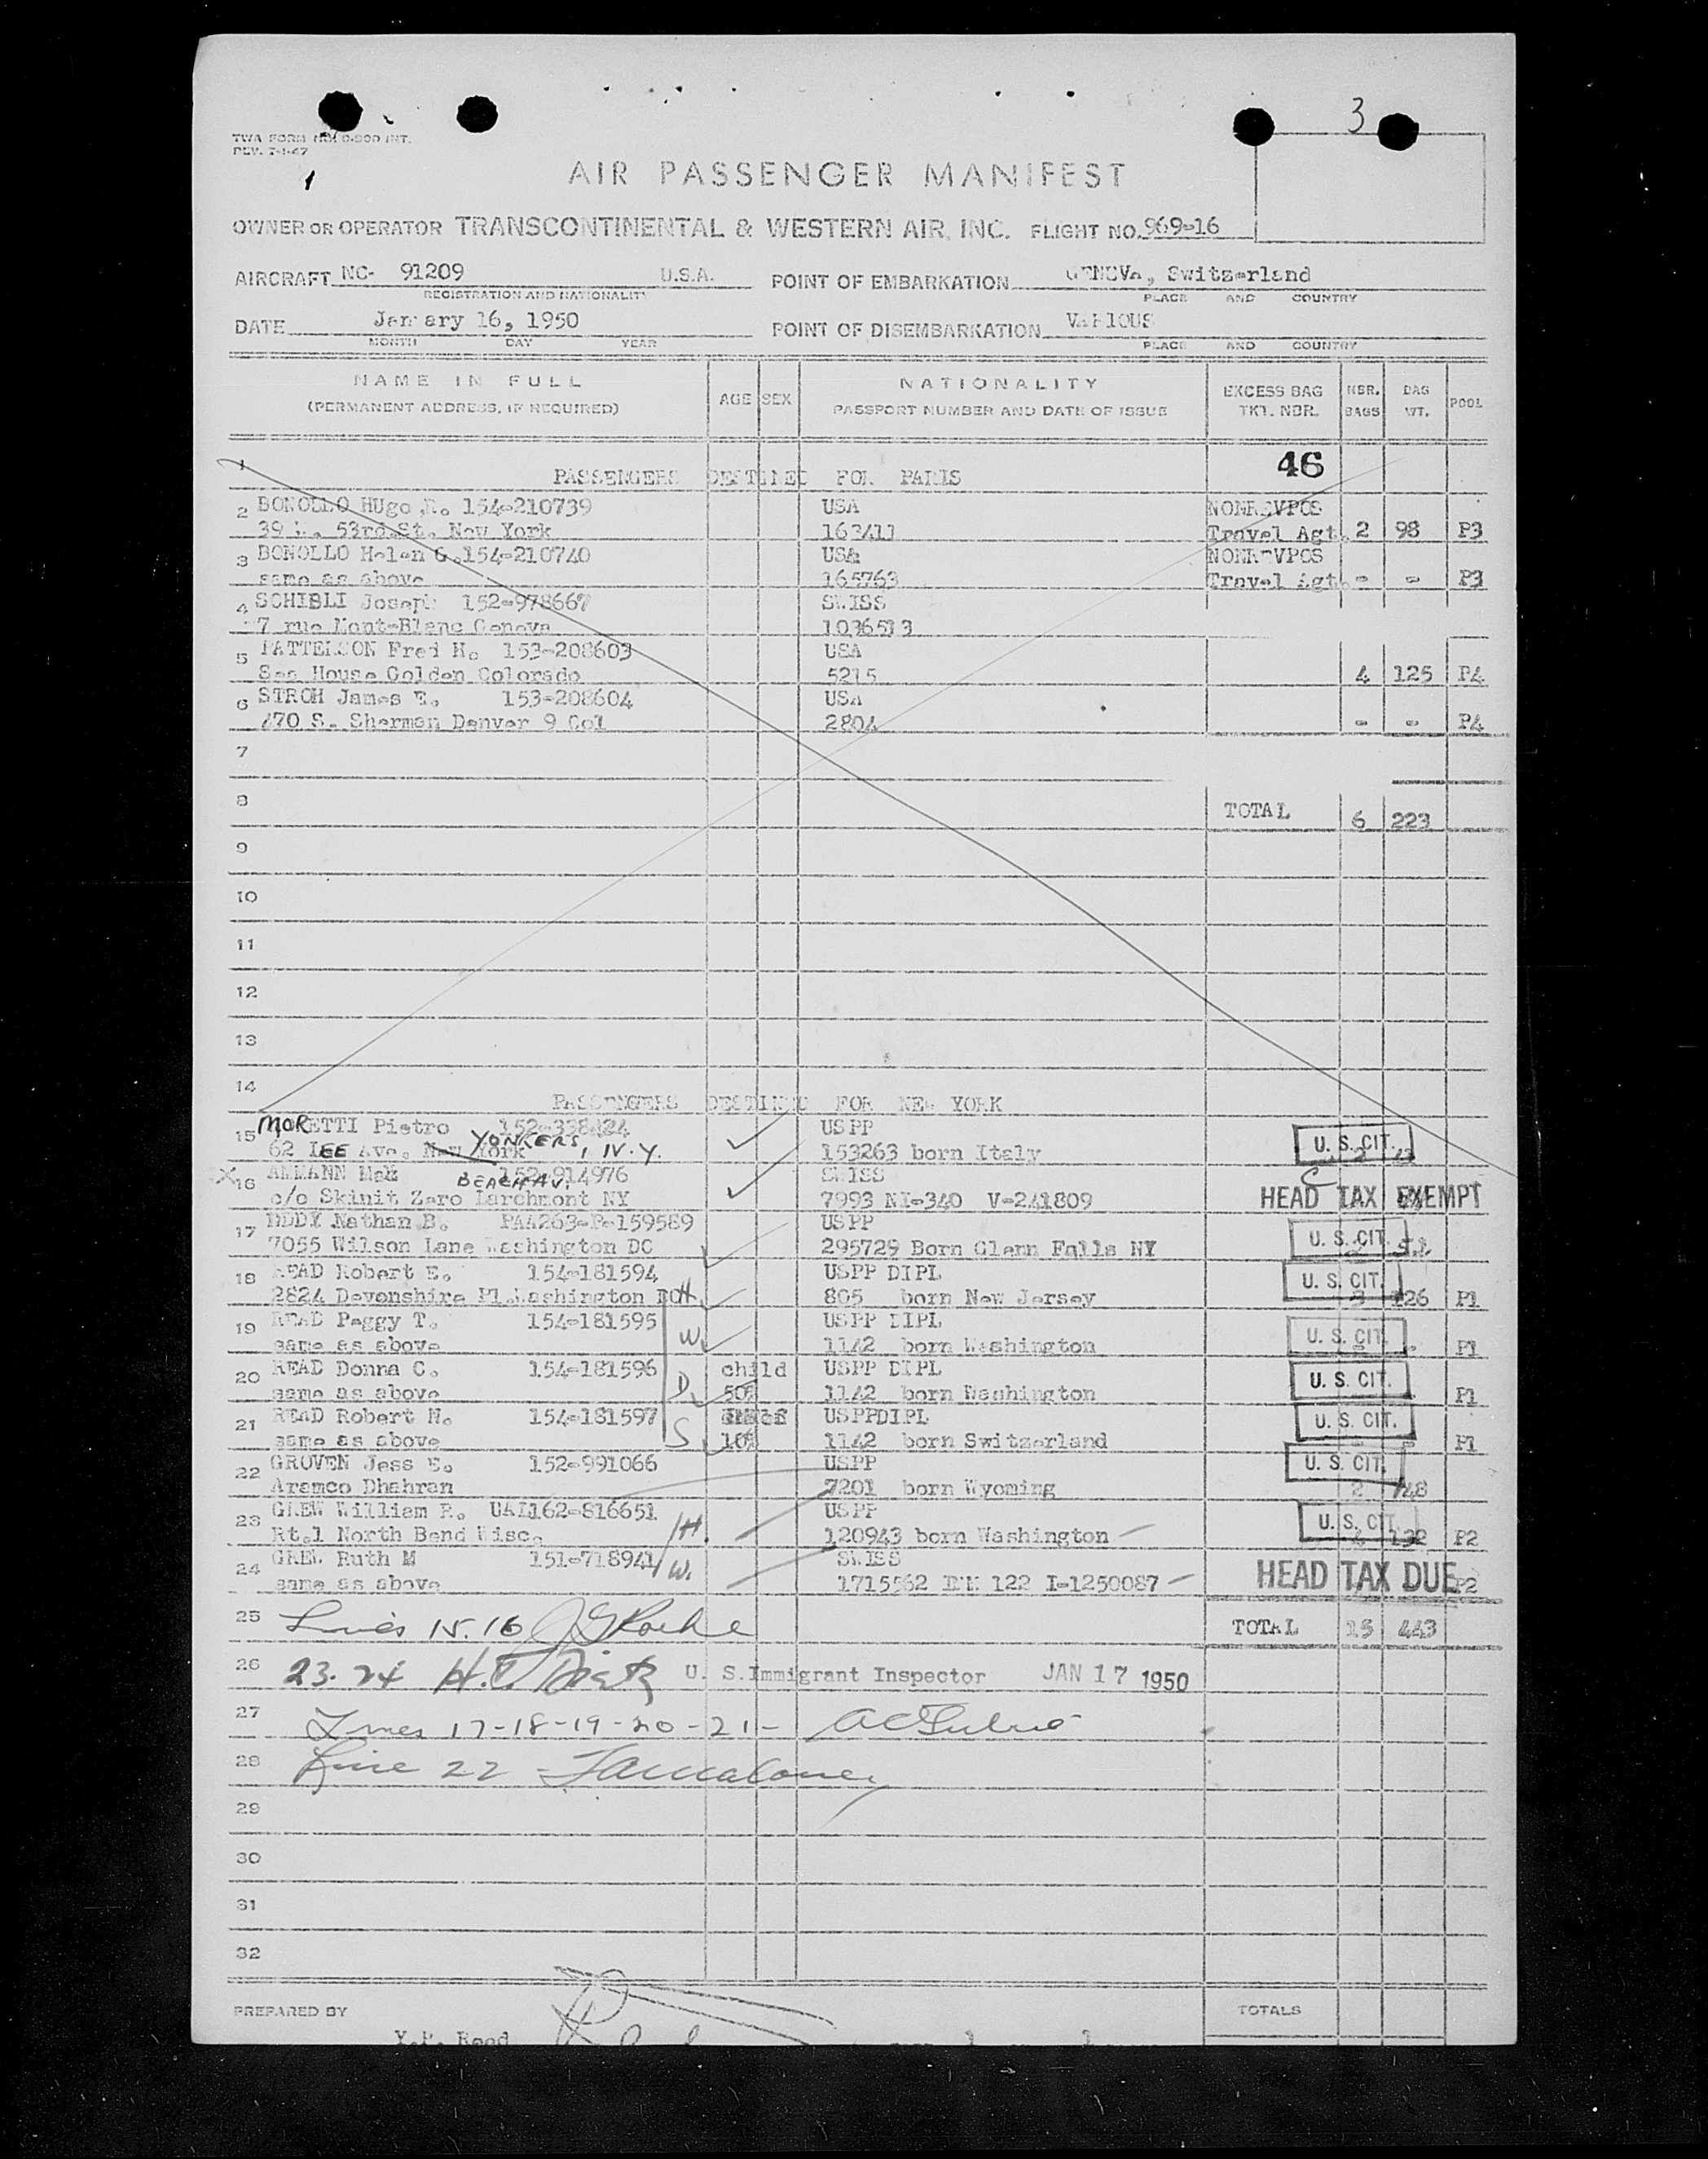 3
TWA FORM
REV. 7-1-47
1
AIR PASSENGER MANIFEST
OWNER OR OPERATOR TRANSCONTINENTAL & WESTERN AIR, INC. FLIGHT NO. 969-16
AIRCRAFT NC- 91209 U.S.A. POINT OF EMBARKATION GENEVA, Switzerland
REGISTRATION AND NATIONALITY PLACE AND COUNTRY
DATE January 16, 1950 POINT OF DISEMBARKATION VARIOUS
MONTH DAY YEAR PLACE AND COUNTRY
NAME IN FULL AGE SEX NATIONALITY EXCESS BAG NBR. BAG POOL
(PERMANENT ADDRESS, IF REQUIRED) PASSPORT NUMBER AND DATE OF ISSUE TKT. NBR. BAGS WT.
1 PASSENGERS DESTINED FOR PARIS 46
2 BONOLLO HUgo R. 154-210739 USA NONREVPOS
39 53rd.St. New York 163411 Travel Agt. 2 98 P3
3 BONOLLO Helen G.154-210740 USA NONREVPOS
same as above 165763 Travel Agt. - - P3
4 SCHIBLI Joseph 152-978667 SWISS
7 rue Mont-Blanc Geneva 1036513
5 PATTERSON Fred H. 153-208603 USA
See House Golden Colorado 5215 4 125 P4
6 STROH James E. 153-208604 USA
470 S. Sherman Denver 9 Col 2804 - - P4
7
8 TOTAL 6 223
9
10
11
12
13
14 PASSENGERS DESTINED FOR NEW YORK
15 MORETTI Pietro 152-338424 USPP
62 LEE Ave. New York YONKERS, N.Y. 153263 born Italy U. S. CIT.
16 AMMANN Max 152-914976 SWISS C
c/o Skinit Zero Larchmont NY BEACH AV. 7993 NI-340 V-241809 HEAD TAX EXEMPT
17 EDDY Nathan B. PAA263-P-159589 USPP
7055 Wilson Lane Washington DC 295729 Born Glenn Falls NY U. S. CIT.
18 READ Robert E. 154-181594 USPP DIPL U. S. CIT.
2824 Devonshire Pl.Washington DC H. 805 born New Jersey 3 126 P1
19 READ Peggy T. 154-181595 USPP DIPL
same as above W. 1142 born Washington U. S. CIT. - - P1
20 READ Donna C. 154-181596 child USPP DIPL
same as above D. 50% 1142 born Washington U. S. CIT. P1
21 READ Robert N. 154-181597 USPPDIPL U. S. CIT.
same as above S 10% 1142 born Switzerland - - P1
22 GROVEN Jess E. 152-991066 USPP U. S. CIT.
Aramco Dhahran 7201 born Wyoming 2 148
23 GREW William R. UAL162-816651 USPP U. S. CIT.
Rt.1 North Bend Wisc. H. 120943 born Washington 4 132 P2
24 GREW Ruth M 151-718941 SWISS
same as above W. 1715562 122 I-1250087 HEAD TAX DUE P2
25 Lines 15.16 TOTAL 15 443
26 23. 24 U. S. Immigrant Inspector JAN 17 1950
27 Lines 17-18-19-20-21-
28 Line 22 -
29
30
31
32
PREPARED BY TOTALS